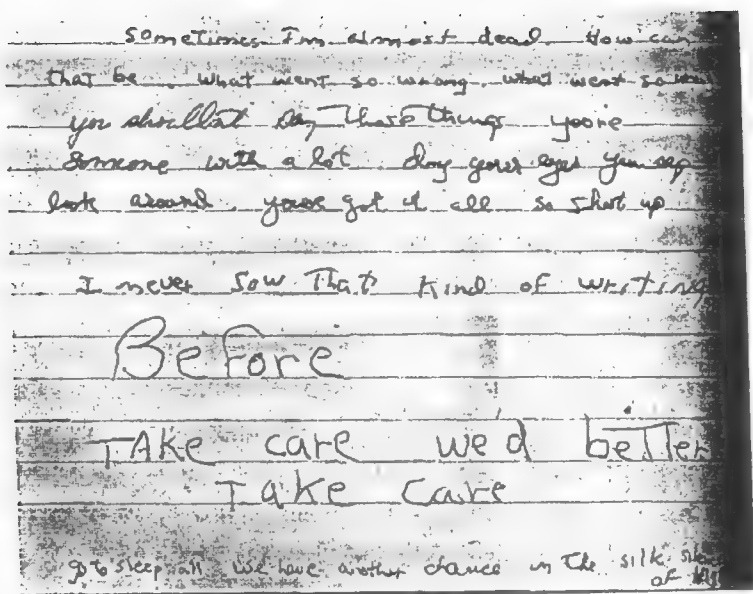 Sometimes I'm almost dead. How can
that be. What went so wrong. what went so
you shouldn't say those things you're
someone with a lot. dry your eyes
look around. you've got it all so shut up
I never saw That kind of writing
Before
TAke care we'd better
Take Care
go to sleep all we have another chance in The silk
of